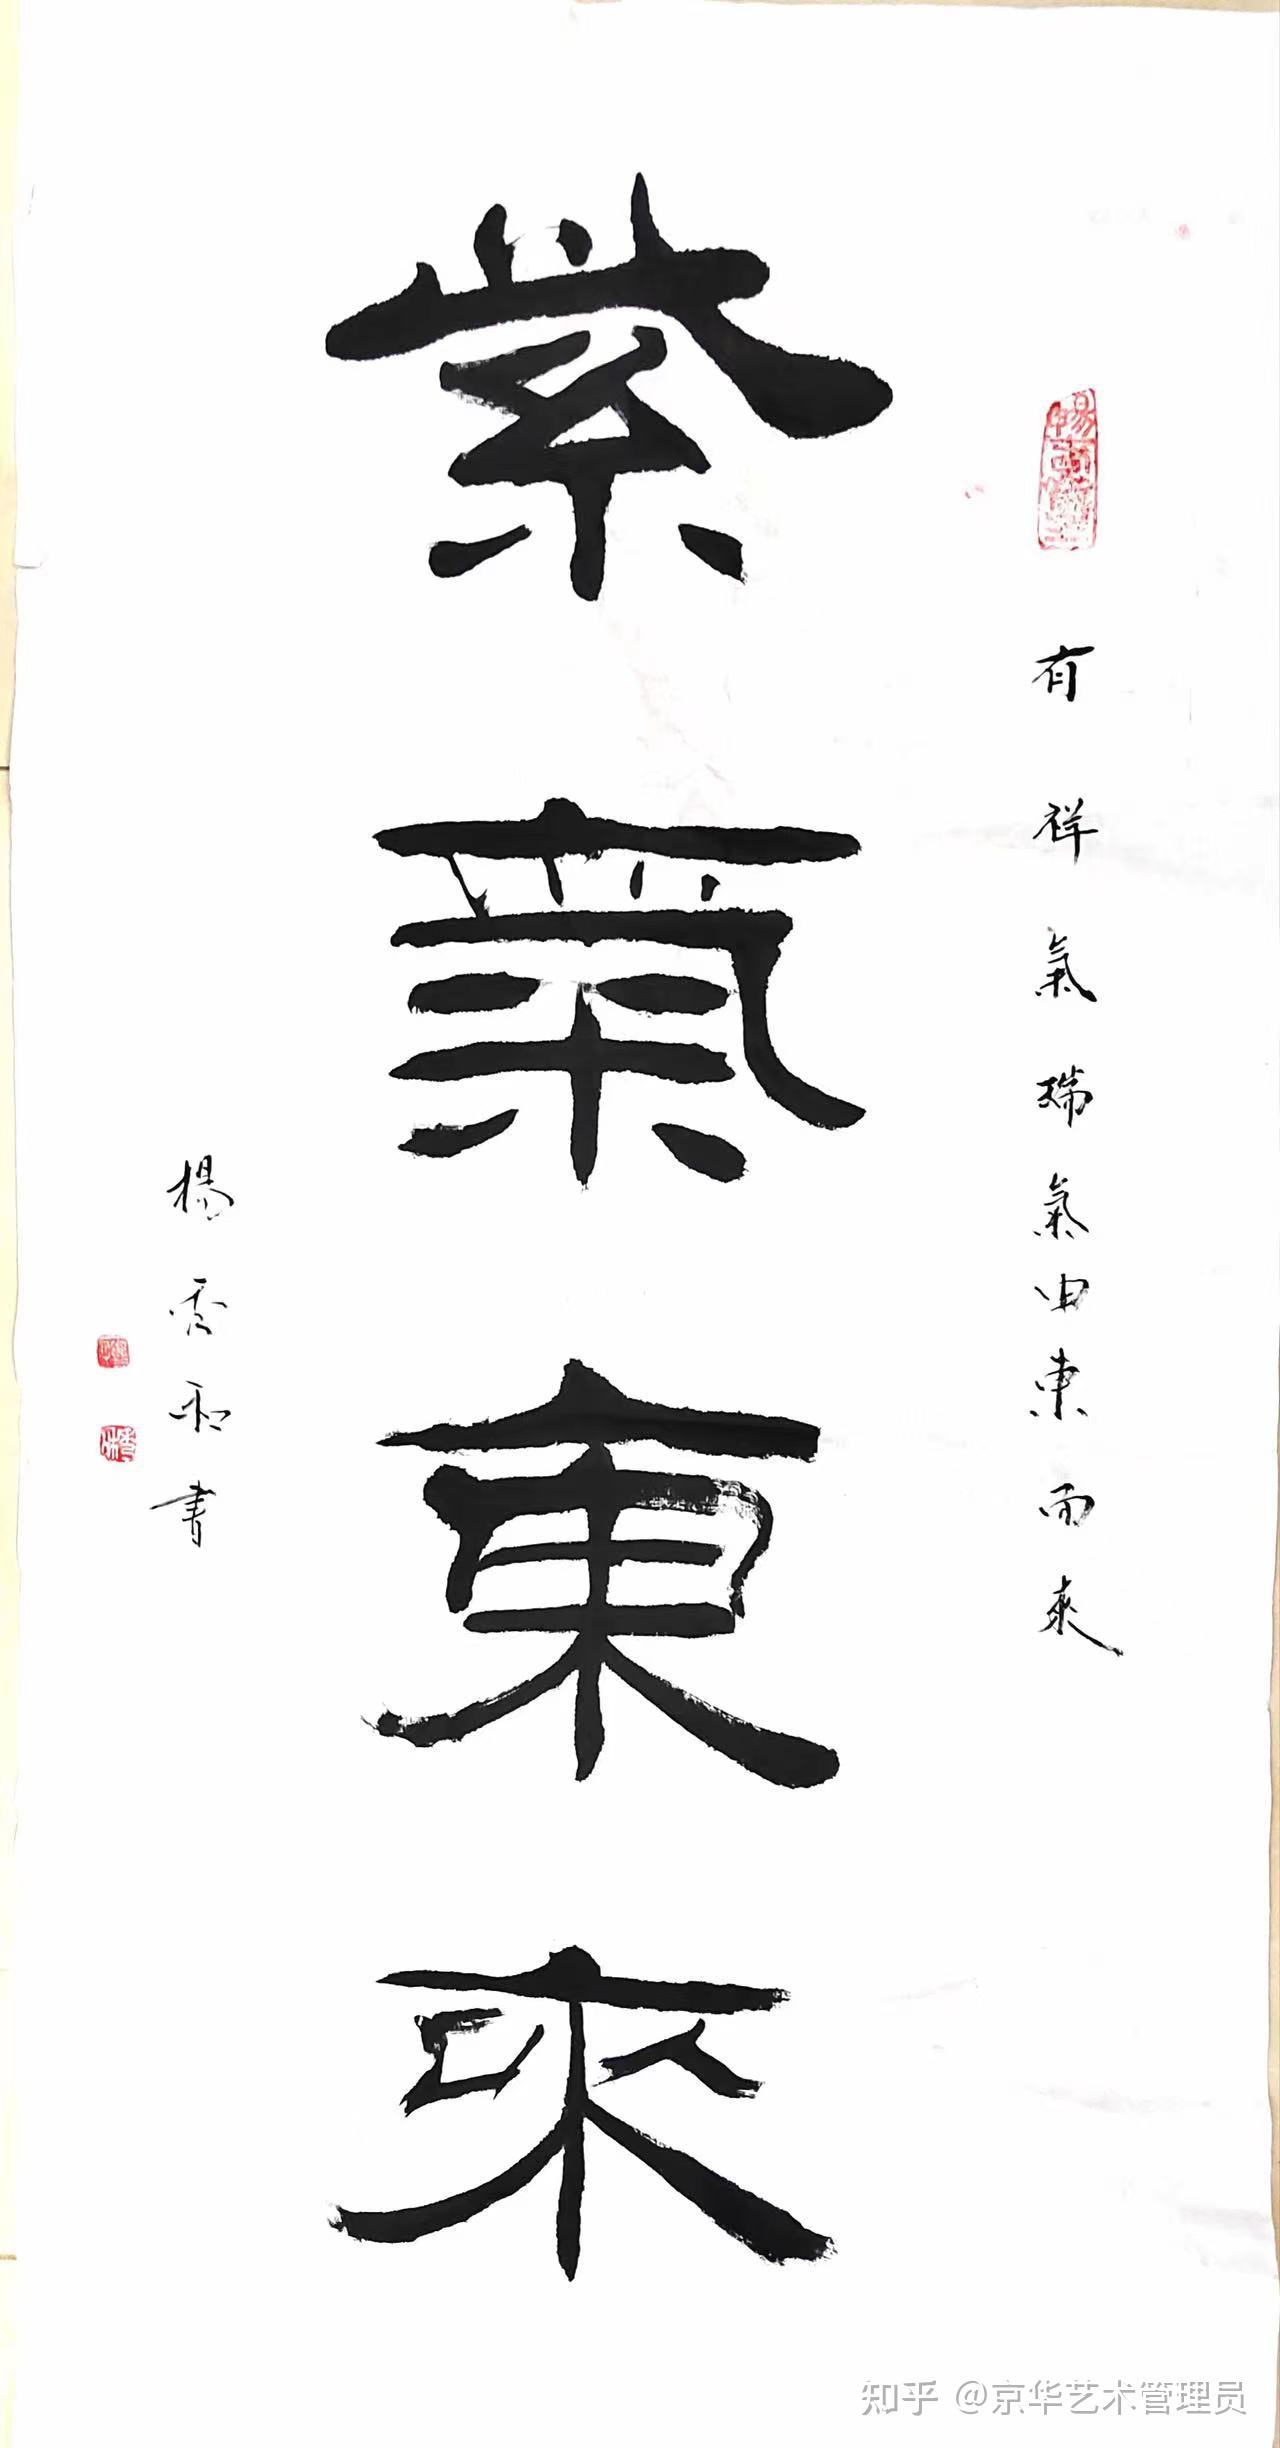 有祥氣瑞氣由東而來
紫氣東來
楊秀和書
知乎 @京华艺术管理员